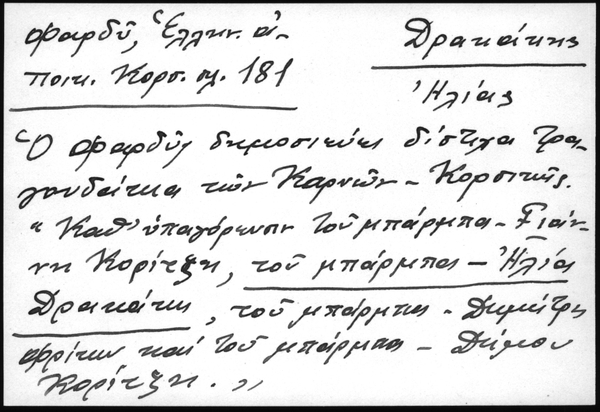 Φαρδῦ, Ἑλλην. ἀ-
ποικ. Κορσ. σλ. 181
Δρακάκης
Ἠλίας
Ὁ Φαρδῦς δημοσιεύει δίστιχα τρα-
γουδάκια τῶν Καρυῶν - Κορσικῆς.
"Καθ' ὑπαγόρευσιν τοῦ μπάρμπα - Γιάν-
νη Κορίτζη, τοῦ μπάρμπα - Ἠλία
Δρακάκη, τοῦ μπάρμπα - Δημήτρη
Φρίμη καὶ τοῦ μπάρμπα - Δήμου
Κορίτζη."